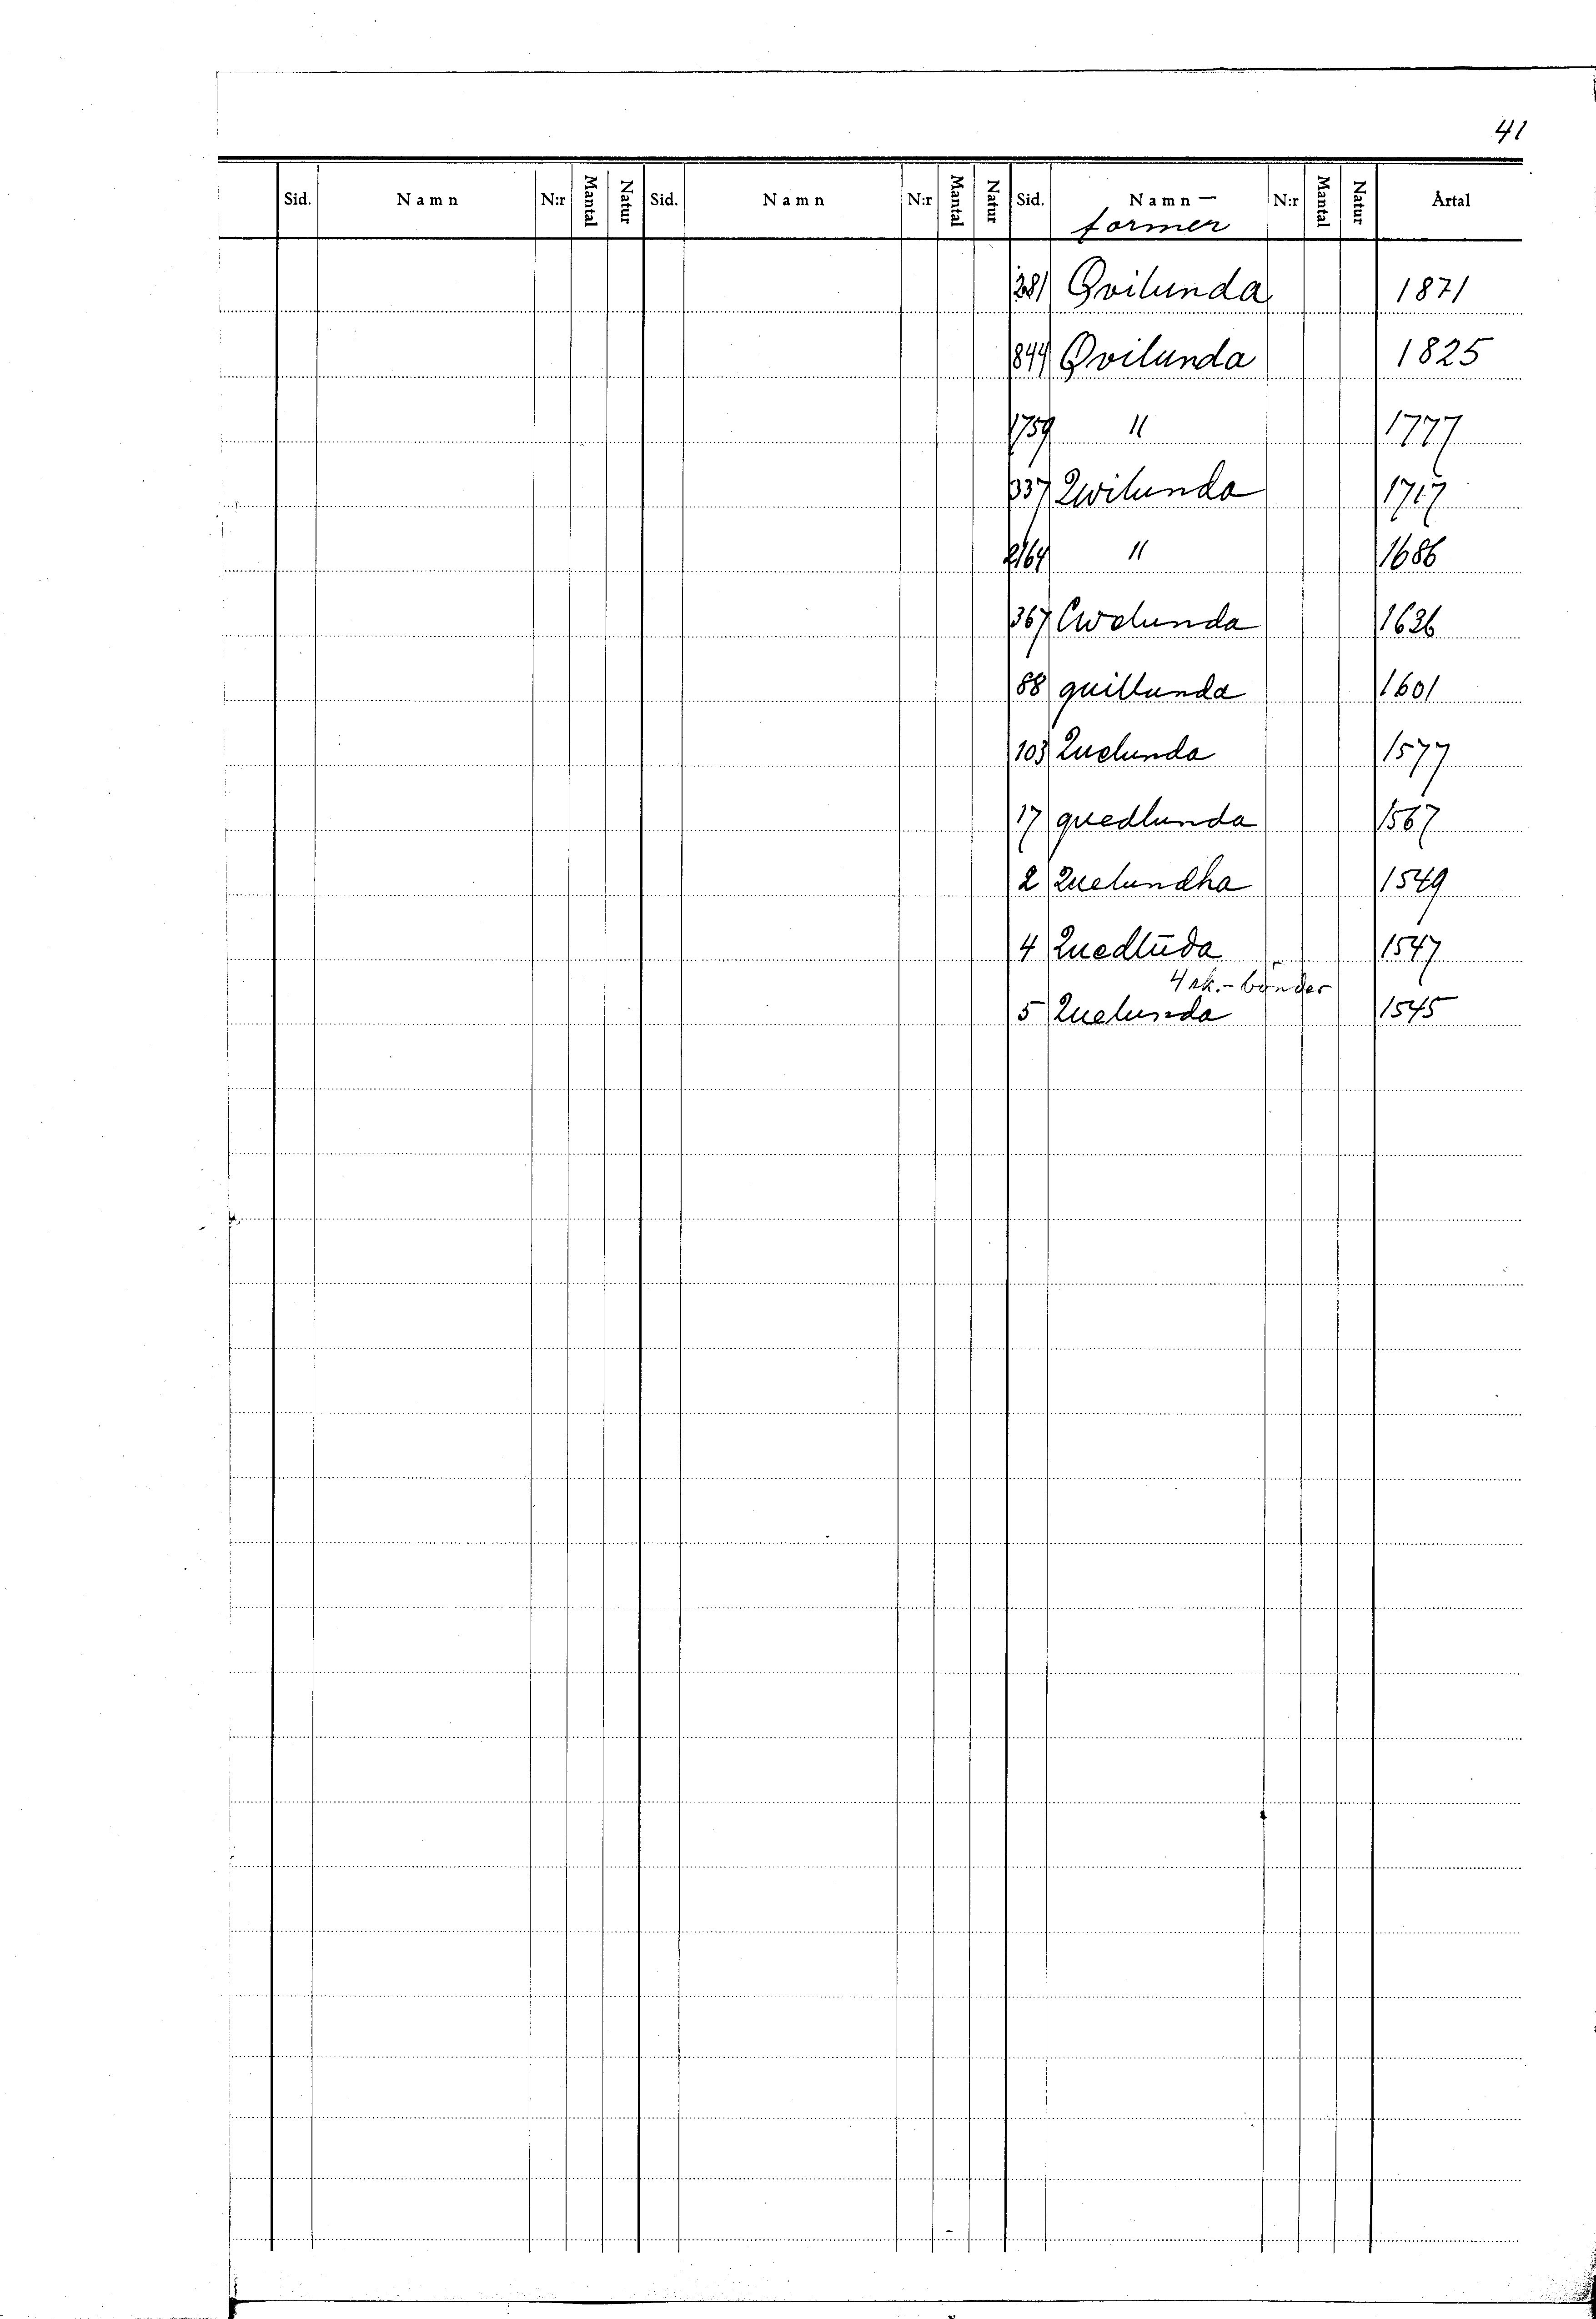 41
Sid. Namn N:r Mantal Natur Sid. Namn N:r Mantal Natur Sid. Namn— N:r Mantal Natur Årtal
former
281 Qvilunda 1871
844 Qvilunda 1825
1759 " 1777
337 Qwilunda 1717
2164 " 1686
367 Cwelunda 1636
88 quillunda 1601
103 Quelunda 1577
17 quedlunda 1567
2 Quelundha 1549
4 Quedlūda 1547
4 sk.-bönder
5 Quelunda 1545